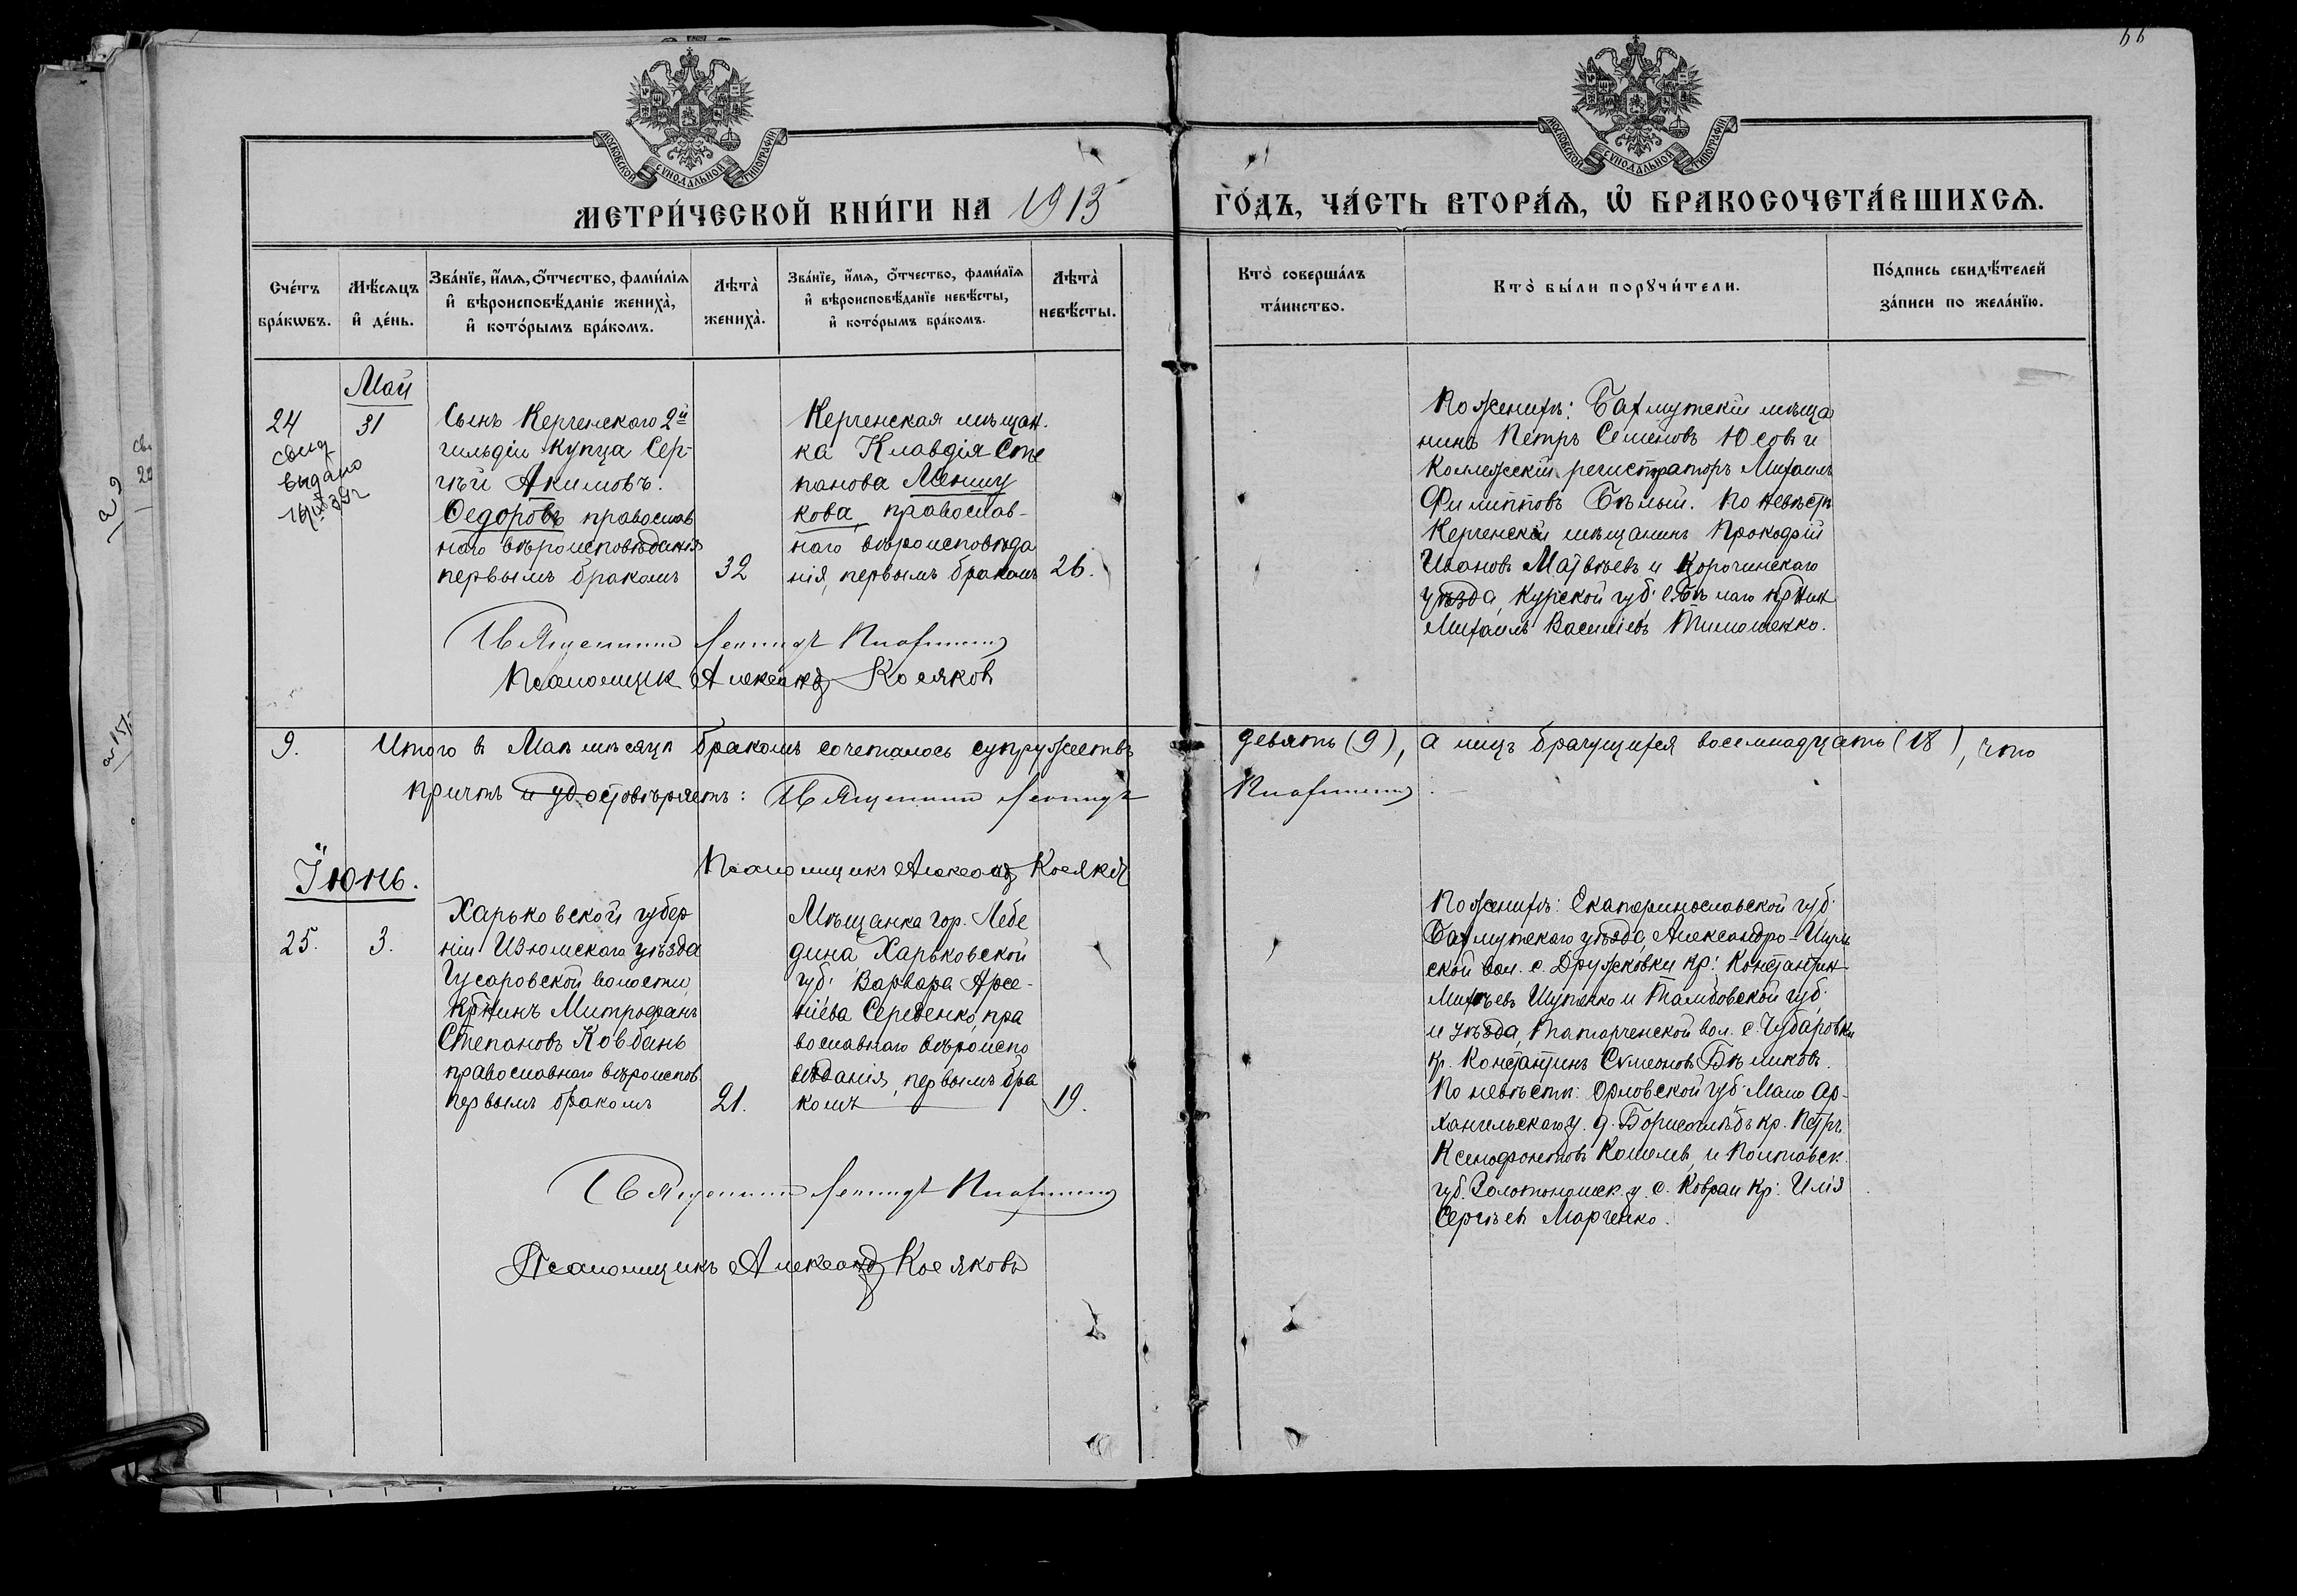 66
МОСКОВСКОЙ СѴНОДАЛЬНОЙ ТИПОГРАФІИ
МОСКОВСКОЙ СѴНОДАЛЬНОЙ ТИПОГРАФІИ
МЕТРИ́ЧЕСКОЙ КНИ́ГИ НА 1913
ГО́ДЪ, ЧА́СТЬ ВТОРА́Ѧ, Ѡ҆ БРАКОСОЧЕТА́ВШИХСѦ.
Сче́тъ бра́кѡвъ.
Мѣ́сѧцъ и҆ де́нь.
Зва́нїе, и҆́мѧ, ѻ҆́тчество, фами́лїѧ и҆ вѣроисповѣ́данїе жениха̀, и҆ кото́рымъ бра́комъ.
Лѣта̀ жениха̀.
Зва́нїе, и҆́мѧ, ѻ҆́тчество, фами́лїѧ и҆ вѣроисповѣ́данїе невѣ́сты, и҆ кото́рымъ бра́комъ.
Лѣта̀ невѣ́сты.
Кто̀ соверша́лъ та́инство.
Кто̀ бы́ли порꙋчи́тели.
По́дпись свидѣ́телей за́писи по жела́нїю.
Май
24
свид
выдано
31
Сынъ Керченскаго 2й
гильдіи купца Сер-
гѣй Акимовъ
Ѳедоровъ православ
наго вѣроисповѣданія
первымъ бракомъ
32
Керченская мѣщан-
ка Клавдія Сте
панова Меншу
кова, православ-
наго вѣроисповѣда
нія, первымъ бракомъ
26.
По женихѣ: Бахмутскій мѣща
нинъ Петръ Семеновъ Юсовъ и
Коллежскій регистраторъ Михаилъ
Филипповъ Бѣлый. По невѣстѣ
Керченскій мѣщанинъ Прокофій
Ивановъ Матвѣевъ и Корочинскаго
уѣзда, Курской губ.
Михаилъ Васильевъ Тимошенко.
Священникъ Леонидъ
Псаломщик Александр Косяков
9.
Итого в Маѣ мѣсяцѣ бракомъ сочеталось супружествъ
девять (9), а лицъ брачущихся восемнадцать (18), что
причтъ и удостовѣряетъ: Священникъ Леонидъ
Псаломщикъ Александр Косяков
Іюнь.
25.
3.
Харьковской губер
ніи Изюмскаго уѣзда
Гусаровской волости
крнинъ Митрофанъ
Степановъ Ковбань
православнаго вѣроиспов
первымъ бракомъ
21.
Мѣщанка гор. Лебе
дина Харьковской
губ. Варвара Арсе-
ніева Середенко, пра
вославнаго вѣроиспо
вѣданія, первымъ бра
комъ
19.
По женихѣ: Екатеринославской губ.
Бахмутскаго уѣзда, Александро-Шуль
ской вол. с. Дружковки кр. Константин
Михѣевъ Шупенко и Тамбовской губ.
и уѣзда, вол. с. Чубаровки
кр. Константинъ Сѵмеоновъ Бѣликовъ.
По невѣстѣ: Орловской губ. Мало Ар-
хангельскаго у. д. Борисоглѣбъ кр. Петръ
Ксенофонтовъ Кошелев, и Полтавск.
губ. Золотоношск. у. с. Коврай кр. Илія
Сергѣевъ Марченко.
Священникъ Леонидъ
Псаломщикъ Александр Косяковъ